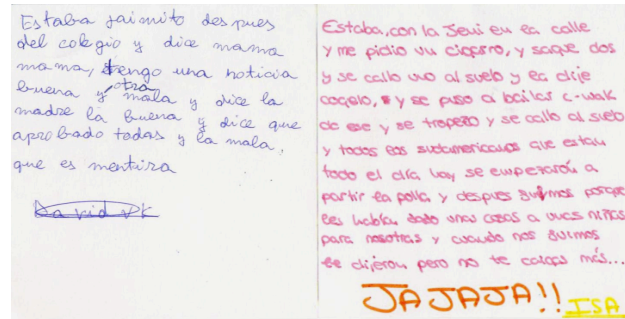 Estaba jaimito despues
del colegio y dice mama
mama, tengo una noticia
buena y otra mala y dice la
madre la buena y dice que
aprobado todas y la mala,
que es mentira
David VK
Estaba, con la Jeni en la calle
y me pidio un cigarro, y saque dos
y se callo uno al suelo y la dije
cogelo, y se puso a bailar c-walk
de ese y se tropezo y se callo al suelo
y todos los sudamericanos que estan
todo el dia hay se empezaron a
partir la polla, y despues fuimos porque
les habian dado unas cosas a unas niñas
para nosotras y cuando nos fuimos
le dijeron pero no te caigas más...
JAJAJA!! ISA